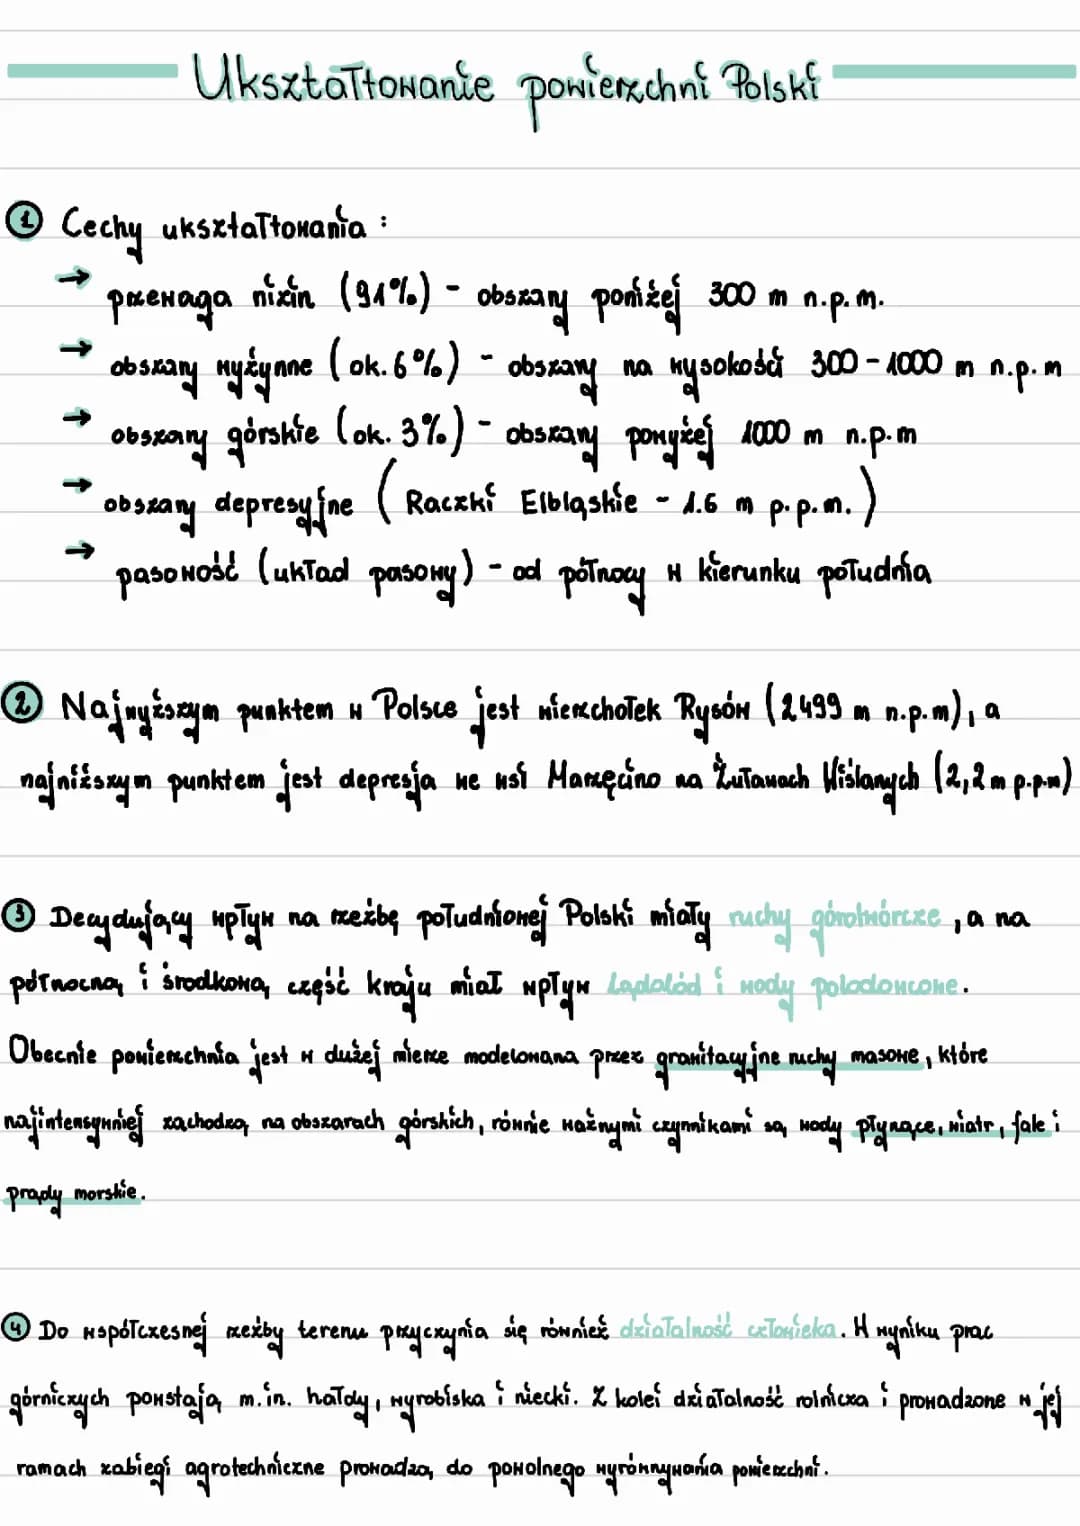 Ukształtowanie powierzchni Polski
1 Cechy ukształtowania :
→ przewaga nizin (91%) - obszary poniżej 300 m n.p.m.
→ obszary wyżynne (ok. 6%) - obszary na wysokości 300 - 1000 m n.p.m
→ obszary górskie (ok. 3%) - obszary powyżej 1000 m n.p.m
→ obszary depresyjne (Raczki Elbląskie - 1.6 m p.p.m.)
→ pasowość (układ pasowy) - od północy w kierunku południa
2 Najwyższym punktem w Polsce jest wierzchołek Rysów (2499 m n.p.m), a
najniższym punktem jest depresja we wsi Marzęcino na Żuławach Wiślanych (2,2 m p.p.m)
3 Decydujący wpływ na rzeźbę południowej Polski miały ruchy górotwórcze, a na
północną i środkową część kraju miał wpływ lądolód i wody polodowcowe.
Obecnie powierzchnia jest w dużej mierze modelowana przez grawitacyjne ruchy masowe, które
najintensywniej zachodzą na obszarach górskich, równie ważnymi czynnikami są wody płynące, wiatr, fale i
prądy morskie.
4 Do współczesnej rzeźby terenu przyczynia się również działalność człowieka. W wyniku prac
górniczych powstają m.in. hałdy, wyrobiska i niecki. Z kolei działalność rolnicza i prowadzone w jej
ramach zabiegi agrotechniczne prowadzą do powolnego wyrównywania powierzchni.